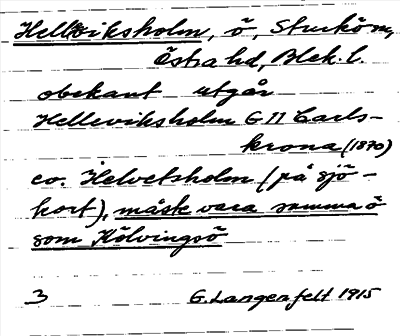 Hellviksholm, ö, Sturkö sn,
Östra hd, Blek. l.
obekant utgår
Helleviksholm G 11 Carls-
krona (1870)
co. Helvetsholm (på sjö-
kort), måste vara samma ö
som Kölvingsö
3 G. Langenfelt 1915